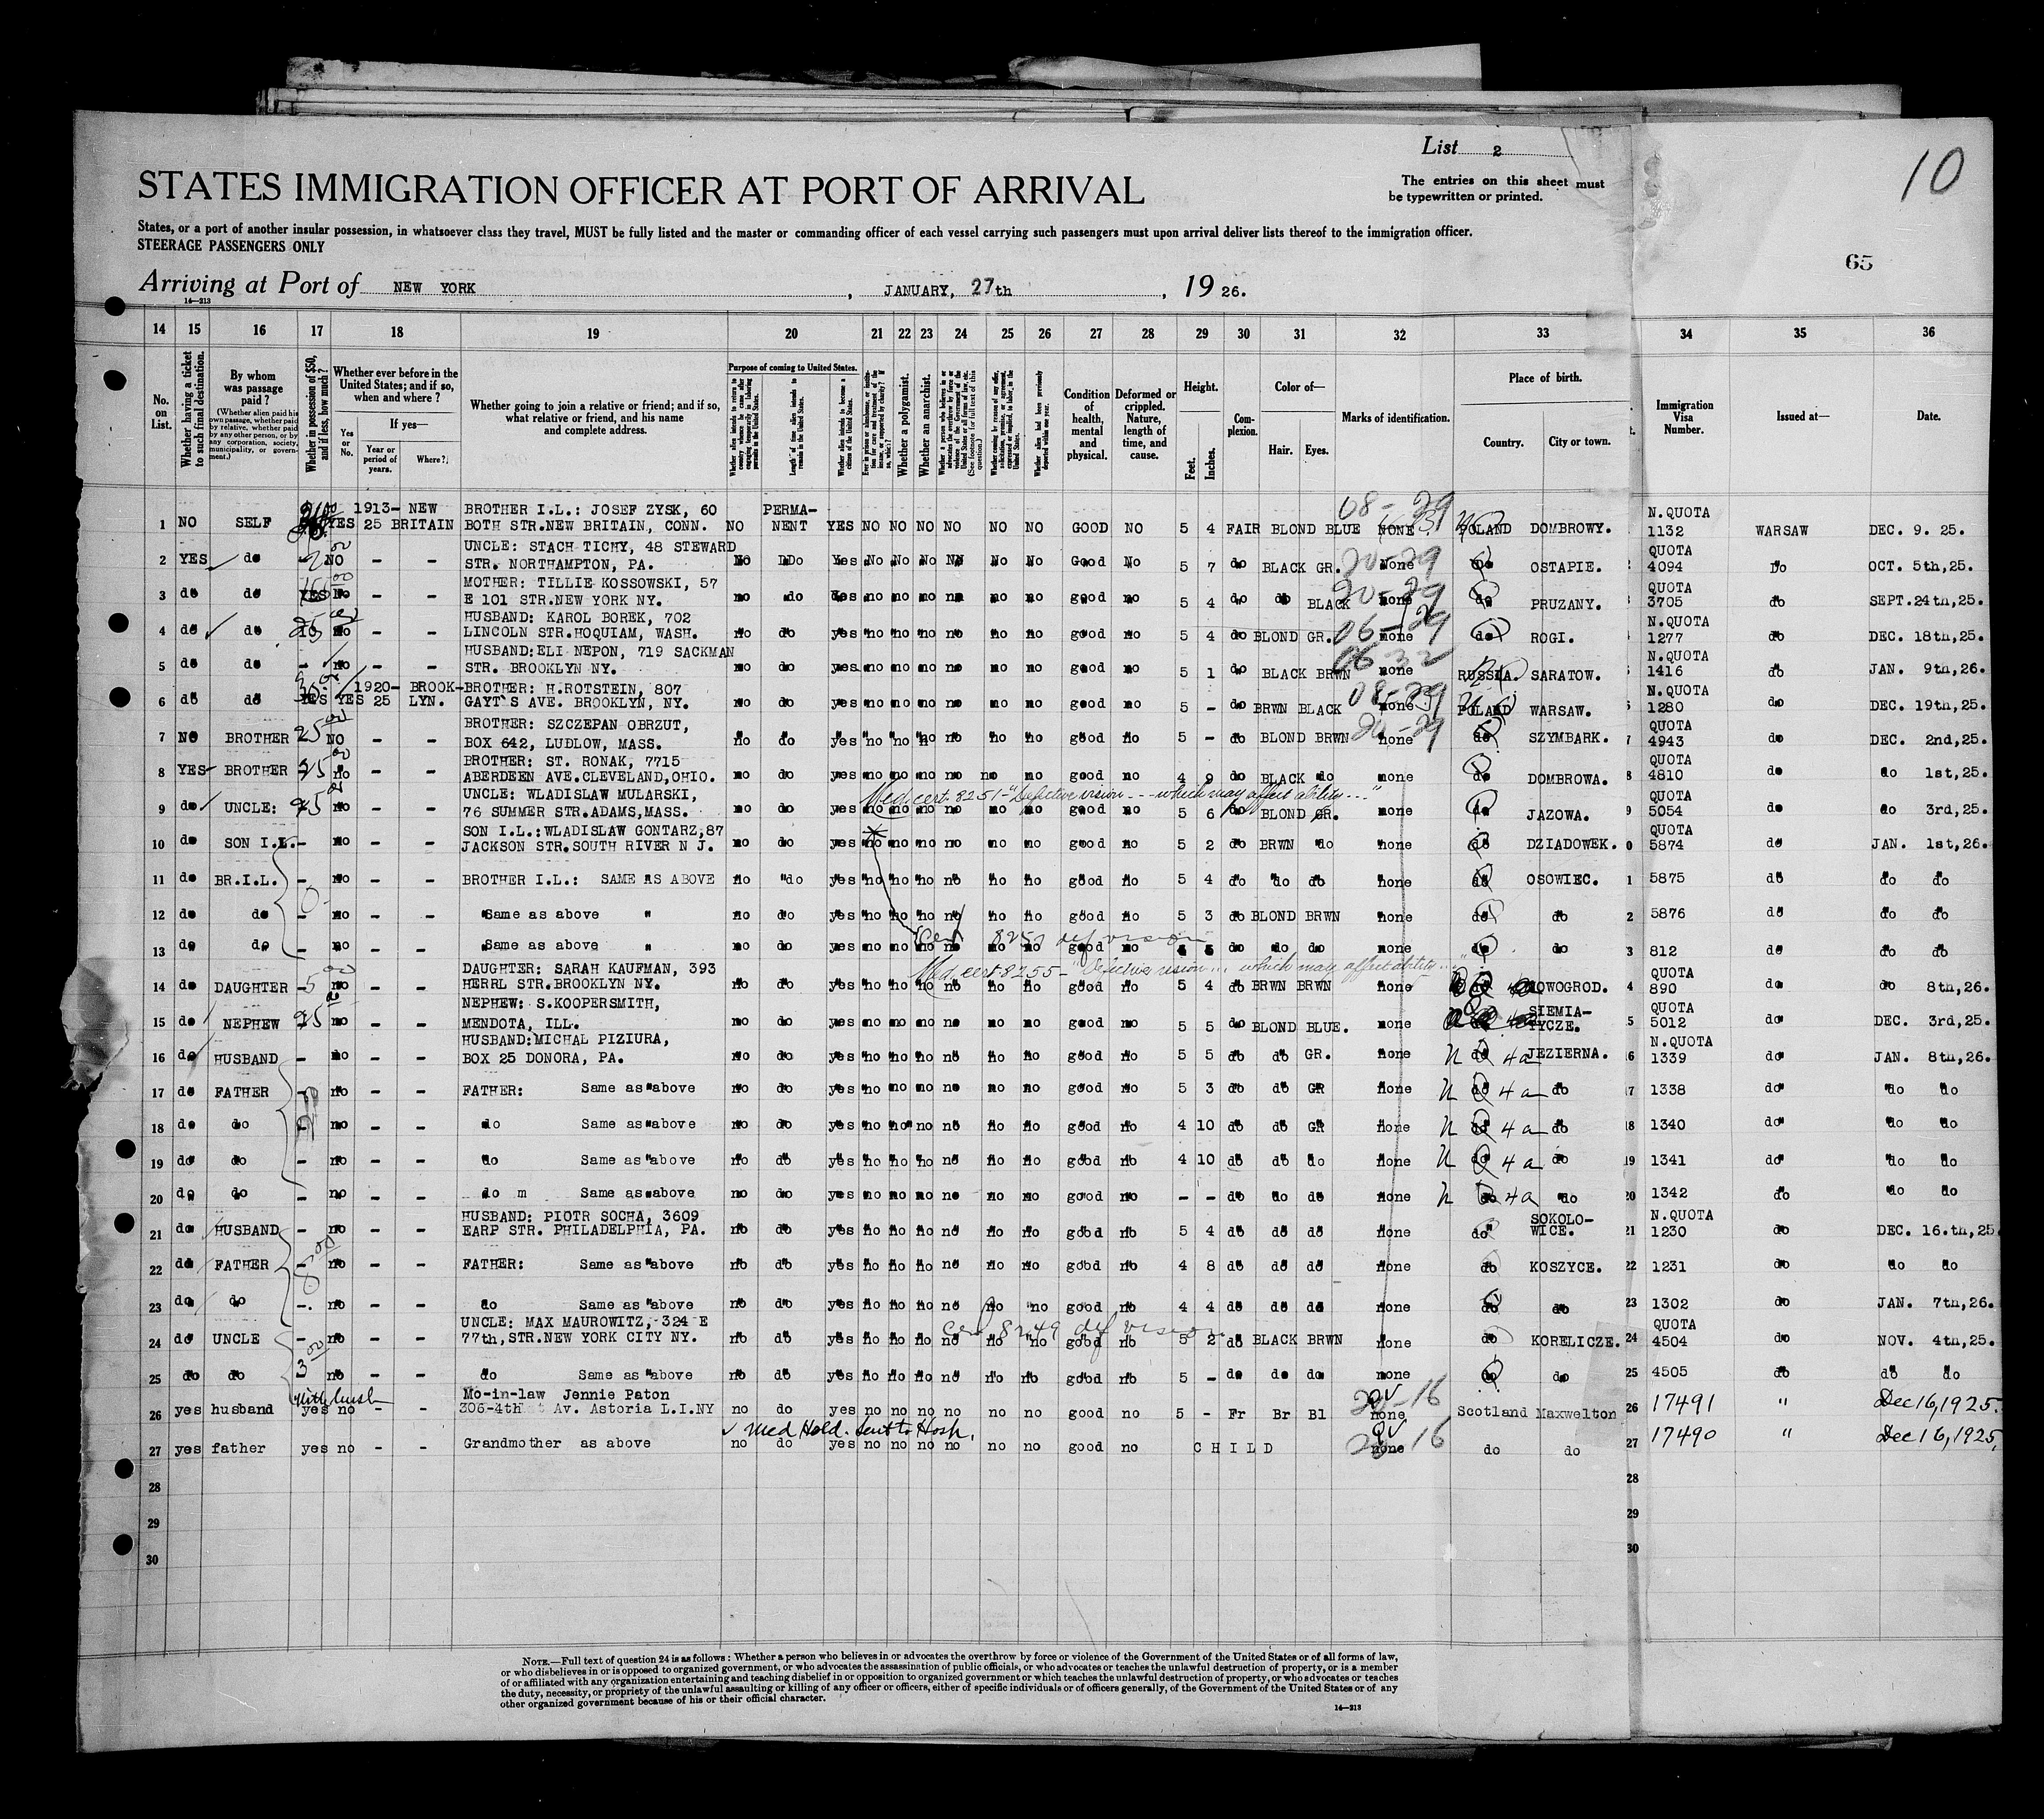 List 2
10
STATES IMMIGRATION OFFICER AT PORT OF ARRIVAL
The entries on this sheet must
be typewritten or printed.
States, or a port of another insular possession, in whatsoever class they travel, MUST be fully listed and the master or commanding officer of each vessel carrying such passengers must upon arrival deliver lists thereof to the immigration officer.
STEERAGE PASSENGERS ONLY
65
Arriving at Port of NEW YORK, JANUARY, 27th, 19 26.
14—213
14 15 16 17 18 19 20 21 22 23 24 25 26 27 28 29 30 31 32 33 34 35 36
No. on List.
Whether having a ticket to such final destination.
By whom was passage paid?
(Whether alien paid his own passage, whether paid by relative, whether paid by any other person, or by any corporation, society, municipality, or government.)
Whether in possession of $50, and if less, how much?
Whether ever before in the United States; and if so, when and where?
Yes or No.
If yes—
Year or period of years.
Where?
Whether going to join a relative or friend; and if so, what relative or friend, and his name and complete address.
Purpose of coming to United States.
Length of time alien intends to remain in the United States.
Whether alien intends to become a citizen of the United States.
Whether a polygamist.
Whether an anarchist.
Condition of health, mental and physical.
Deformed or crippled. Nature, length of time, and cause.
Height.
Feet. Inches.
Complexion.
Color of—
Hair. Eyes.
Marks of identification.
Place of birth.
Country. City or town.
Immigration Visa Number.
Issued at—
Date.
1 NO SELF YES 1913-25 NEW BRITAIN BROTHER I.L.: JOSEF ZYSK, 60 BOTH STR.NEW BRITAIN, CONN. NO PERMANENT YES NO NO NO NO NO NO GOOD NO 5 4 FAIR BLOND BLUE NONE POLAND DOMBROWY. N.QUOTA 1132 WARSAW DEC. 9. 25.
2 YES do NO - - UNCLE: STACH TICHY, 48 STEWARD STR. NORTHAMPTON, PA. No Do Yes No No No No No No Good No 5 7 do BLACK GR. None do OSTAPIE. QUOTA 4094 Do OCT. 5th,25.
3 do do YES no - - MOTHER: TILLIE KOSSOWSKI, 57 E 101 STR.NEW YORK NY. no do yes no no no no no no good no 5 4 do do BLACK none do PRUZANY. QUOTA 3705 do SEPT.24th,25.
4 do do no - - HUSBAND: KAROL BOREK, 702 LINCOLN STR.HOQUIAM, WASH. no do yes no no no no no no good no 5 4 do BLOND GR. none do ROGI. N.QUOTA 1277 do DEC. 18th,25.
5 do do - no - - HUSBAND:ELI NEPON, 719 SACKMAN STR. BROOKLYN NY. no do yes no no no no no no good no 5 1 do BLACK BRWN none RUSSIA. SARATOW. N.QUOTA 1416 do JAN. 9th,26.
6 do do YES YES 1920-25 BROOKLYN. BROTHER: H.ROTSTEIN, 807 GAYT'S AVE. BROOKLYN, NY. no do yes no no no no no no good no 5 - do BRWN BLACK none POLAND WARSAW. N.QUOTA 1280 do DEC. 19th,25.
7 NO BROTHER 25 00 NO - - BROTHER: SZCZEPAN OBRZUT, BOX 642, LUDLOW, MASS. no do yes no no no no no no good no 5 - do BLOND BRWN none do SZYMBARK. QUOTA 4943 do DEC. 2nd,25.
8 YES BROTHER 25 00 no - - BROTHER: ST. RONAK, 7715 ABERDEEN AVE.CLEVELAND,OHIO. no do yes no no no no no no good no 4 9 do BLACK do none do DOMBROWA. QUOTA 4810 do do 1st,25.
Med. cert. 8251-"Defective vision --- which may affect ability..."
9 do UNCLE: 25 no - - UNCLE: WLADISLAW MULARSKI, 76 SUMMER STR.ADAMS,MASS. no do yes no no no no no no good no 5 6 do BLOND GR. none do JAZOWA. QUOTA 5054 do do 3rd,25.
10 do SON I.L. - no - - SON I.L.:WLADISLAW GONTARZ,87 JACKSON STR.SOUTH RIVER N J. no do yes no no no no no no good no 5 2 do BRWN do none do DZIADOWEK. QUOTA 5874 do JAN. 1st,26.
11 do BR.I.L. - no - - BROTHER I.L.: SAME AS ABOVE no do yes no no no no no no good no 5 4 do do do none do OSOWIEC. 5875 do do do
12 do do - no - - Same as above " no do yes no no no no no no good no 5 3 do BLOND BRWN none do do 5876 do do do
13 do do - no - - Same as above " no do yes no no no no no no good no do do do none do do 812 do do do
Med. cert. 8255-"Defective vision... which may affect ability..."
14 do DAUGHTER 5 00 no - - DAUGHTER: SARAH KAUFMAN, 393 HERRL STR.BROOKLYN NY. no do yes no no no no no no good no 5 4 do BRWN BRWN none NOWOGROD. QUOTA 890 do do 8th,26.
15 do NEPHEW 25 no - - NEPHEW: S.KOOPERSMITH, MENDOTA, ILL. no do yes no no no no no no good no 5 5 do BLOND BLUE. none SIEMIATYCZE. QUOTA 5012 do DEC. 3rd,25.
16 do HUSBAND no - - HUSBAND:MICHAL PIZIURA, BOX 25 DONORA, PA. no do yes no no no no no no good no 5 5 do do GR. none do 4a JEZIERNA. N.QUOTA 1339 do JAN. 8th,26.
17 do FATHER - no - - FATHER: Same as above no do yes no no no no no no good no 5 3 do do GR none do 4a do 1338 do do do
18 do do - no - - do Same as above no do yes no no no no no no good no 4 10 do do GR none do 4a do 1340 do do do
19 do do - no - - do Same as above no do yes no no no no no no good no 4 10 do do do none do 4a do 1341 do do do
20 do do no - - do m Same as above no do yes no no no no no no good no - - do do do none do 4a do 1342 do do do
21 do HUSBAND - no - - HUSBAND: PIOTR SOCHA, 3609 EARP STR. PHILADELPHIA, PA. no do yes no no no no no no good no 5 4 do do do none do SOKOLOWICE. N.QUOTA 1230 do DEC. 16.th,25
22 do FATHER - no - - FATHER: Same as above no do yes no no no no no no good no 4 8 do do do none do KOSZYCE. 1231 do do do
23 do do -. no - - do Same as above no do yes no no no no no no good no 4 4 do do do none do do 1302 do JAN. 7th,26.
Cert 8249 def vision
24 do UNCLE - no - - UNCLE: MAX MAUROWITZ, 324 E 77th,STR.NEW YORK CITY NY. no do yes no no no no no no good no 5 2 do BLACK BRWN none do KORELICZE. QUOTA 4504 do NOV. 4th,25.
25 do do 3 00 no - - do Same as above no do yes no no no no no no good no 5 - do do do none do do 4505 do do do
with husb
26 yes husband yes no - - Mo-in-law Jennie Paton 306-4th Av. Astoria L.I.NY no do yes no no no no no no good no 5 - Fr Br Bl none Scotland Maxwelton 17491 " Dec 16, 1925.
Med Hold. Sent to Hosp.
27 yes father yes no - - Grandmother as above no do yes no no no no no no good no CHILD none do do 17490 " Dec 16, 1925,
28
29
30
NOTE.—Full text of question 24 is as follows: Whether a person who believes in or advocates the overthrow by force or violence of the Government of the United States or of all forms of law,
or who disbelieves in or is opposed to organized government, or who advocates the assassination of public officials, or who advocates or teaches the unlawful destruction of property, or is a member
of or affiliated with any organization entertaining and teaching disbelief in or opposition to organized government or which teaches the unlawful destruction of property, or who advocates or teaches
the duty, necessity, or propriety of the unlawful assaulting or killing of any officer or officers, either of specific individuals or of officers generally, of the Government of the United States or of any
other organized government because of his or their official character.
14—213